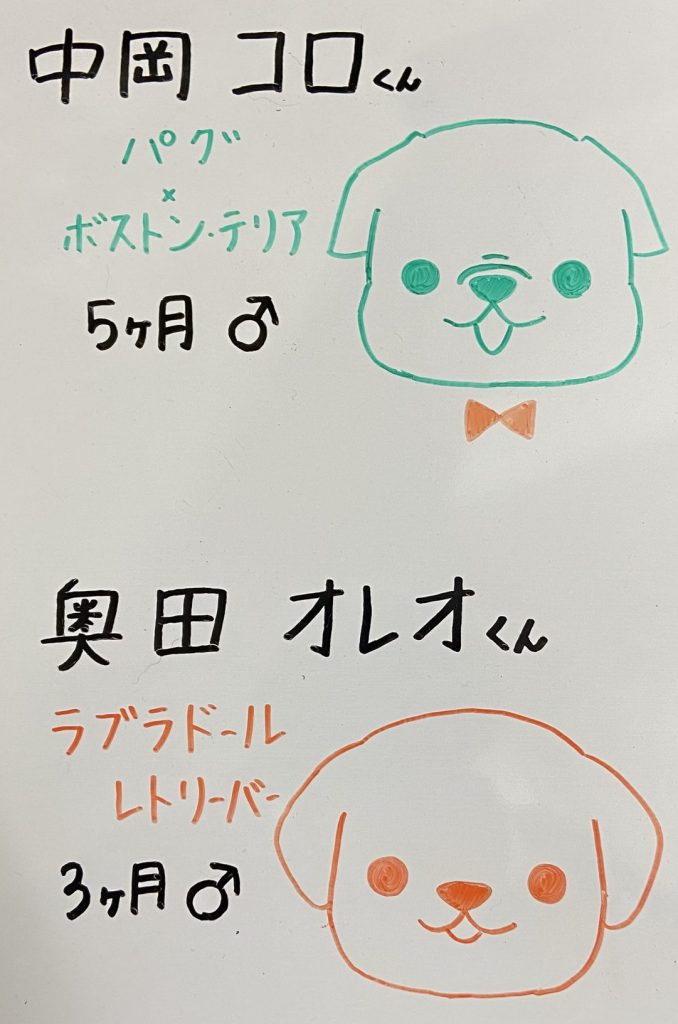 中岡 コロくん
パグ
×
ボストン・テリア
5ヶ月 ♂
奥田 オレオくん
ラブラドール
レトリーバー
3ヶ月 ♂